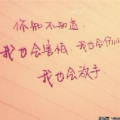 你知不知道
我也会害怕.我也会伤心
我也会放手